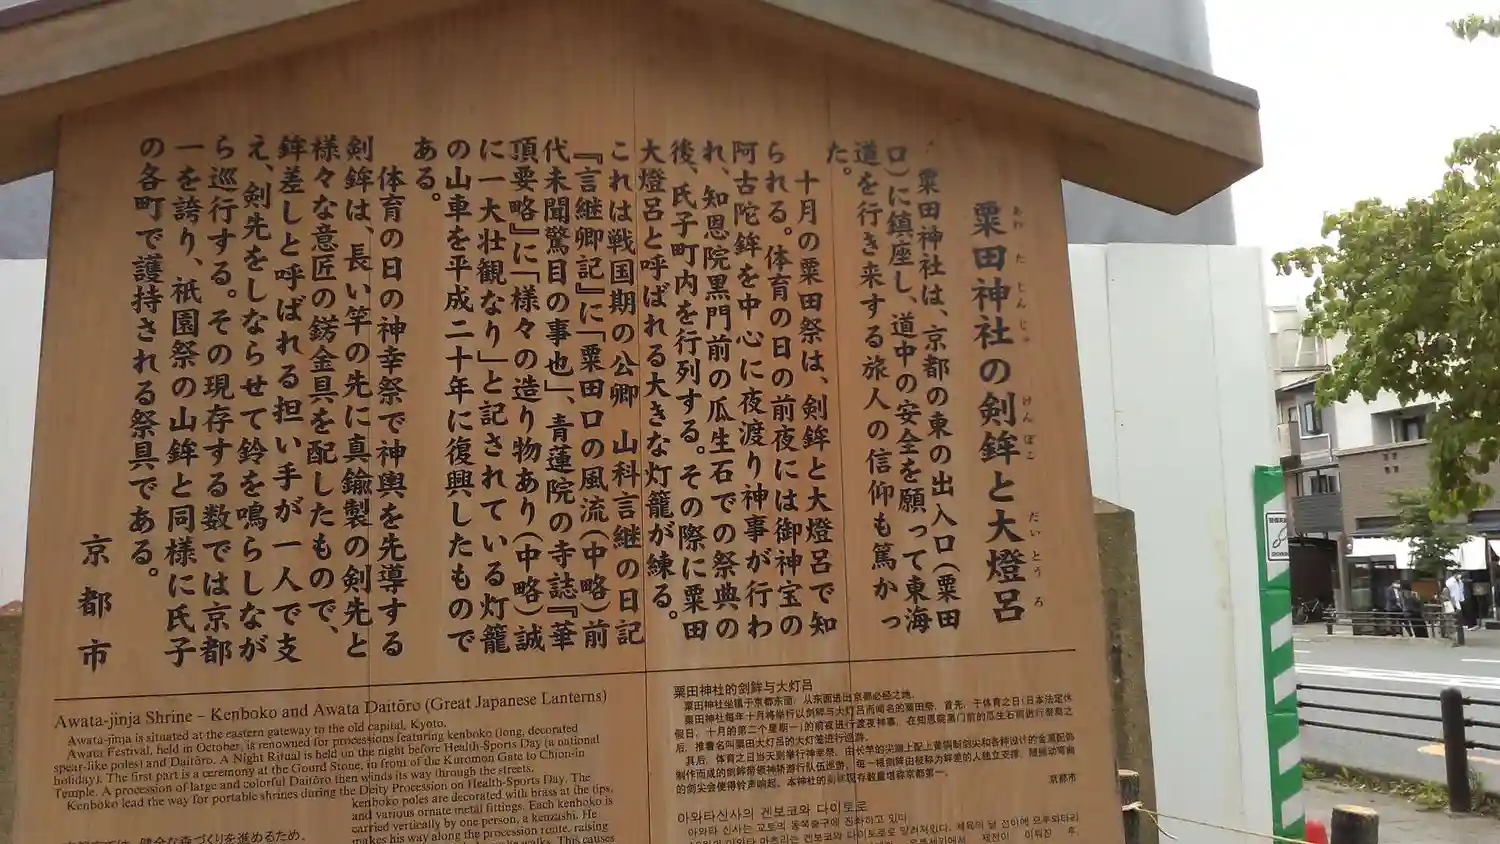 粟田神社の剣鉾と大燈呂
あわたじんじゃ けんぼこ だいとうろ
粟田神社は、京都の東の出入口(粟田
口)に鎮座し、道中の安全を願って東海
道を行き来する旅人の信仰も篤かっ
た。
十月の粟田祭は、剣鉾と大燈呂で知
られる。体育の日の前夜には御神宝の
阿古陀鉾を中心に夜渡り神事が行わ
れ、知恩院黒門前の瓜生石での祭典の
後、氏子町内を行列する。その際に粟田
大燈呂と呼ばれる大きな灯籠が練る。
これは戦国期の公卿 山科言継の日記
『言継卿記』に「粟田口の風流(中略)前
代未聞驚目の事也」、青蓮院の寺誌『華
頂要略』に「様々の造り物あり(中略)誠
に一大壮観なり」と記されている灯籠
の山車を平成二十年に復興したもので
ある。
体育の日の神幸祭で神輿を先導する
剣鉾は、長い竿の先に真鍮製の剣先と
様々な意匠の錺金具を配したもので、
鉾差しと呼ばれる担い手が一人で支
え、剣先をしならせて鈴を鳴らしなが
ら巡行する。その現存する数では京都
一を誇り、祇園祭の山鉾と同様に氏子
の各町で護持される祭具である。
京都市
Awata-jinja Shrine – Kenboko and Awata Daitōro (Great Japanese Lanterns)
Awata-jinja is situated at the eastern gateway to the old capital, Kyoto.
Awata Festival, held in October, is renowned for processions featuring kenboko (long, decorated
spear-like poles) and Daitōro. A Night Ritual is held on the night before Health-Sports Day (a national
holiday). The first part is a ceremony at the Gourd Stone, in front of the Kuromon Gate to Chion-in
Temple. A procession of large and colorful Daitōro then winds its way through the streets.
Kenboko lead the way for portable shrines during the Deity Procession on Health-Sports Day. The
kenboko poles are decorated with brass at the tips,
and various ornate metal fittings. Each kenboko is
carried vertically by one person, a kenzashi. He
makes his way along the procession route, raising
walks. This causes
健全な森づくりを進めるため、
粟田神社的剑鉾与大灯吕
粟田神社坐镇于京都东面，从东面进出京都必经之地。
粟田神社每年十月将举行以剑鉾与大灯吕而闻名的粟田祭。首先，于体育之日(日本法定休
假日，十月的第二个星期一)的前夜进行渡夜神事，在知恩院黑门前的瓜生石前进行祭奠之
后，推着名叫粟田大灯吕的大灯笼进行巡游。
其后，体育之日当天则举行神幸祭，由长竿的尖端上配上黄铜制剑尖和各种设计的金属配饰
制作而成的剑鉾带领神轿游行队伍巡游，每一根剑鉾由被称为鉾差的人独立支撑，随
的剑尖会使得铃声响起。本神社的剑鉾现存数量堪称京都第一。
京都市
아와타신사의 겐보코와 다이토로
아와타 신사는 교토의 동쪽출구에 진좌하고 있다